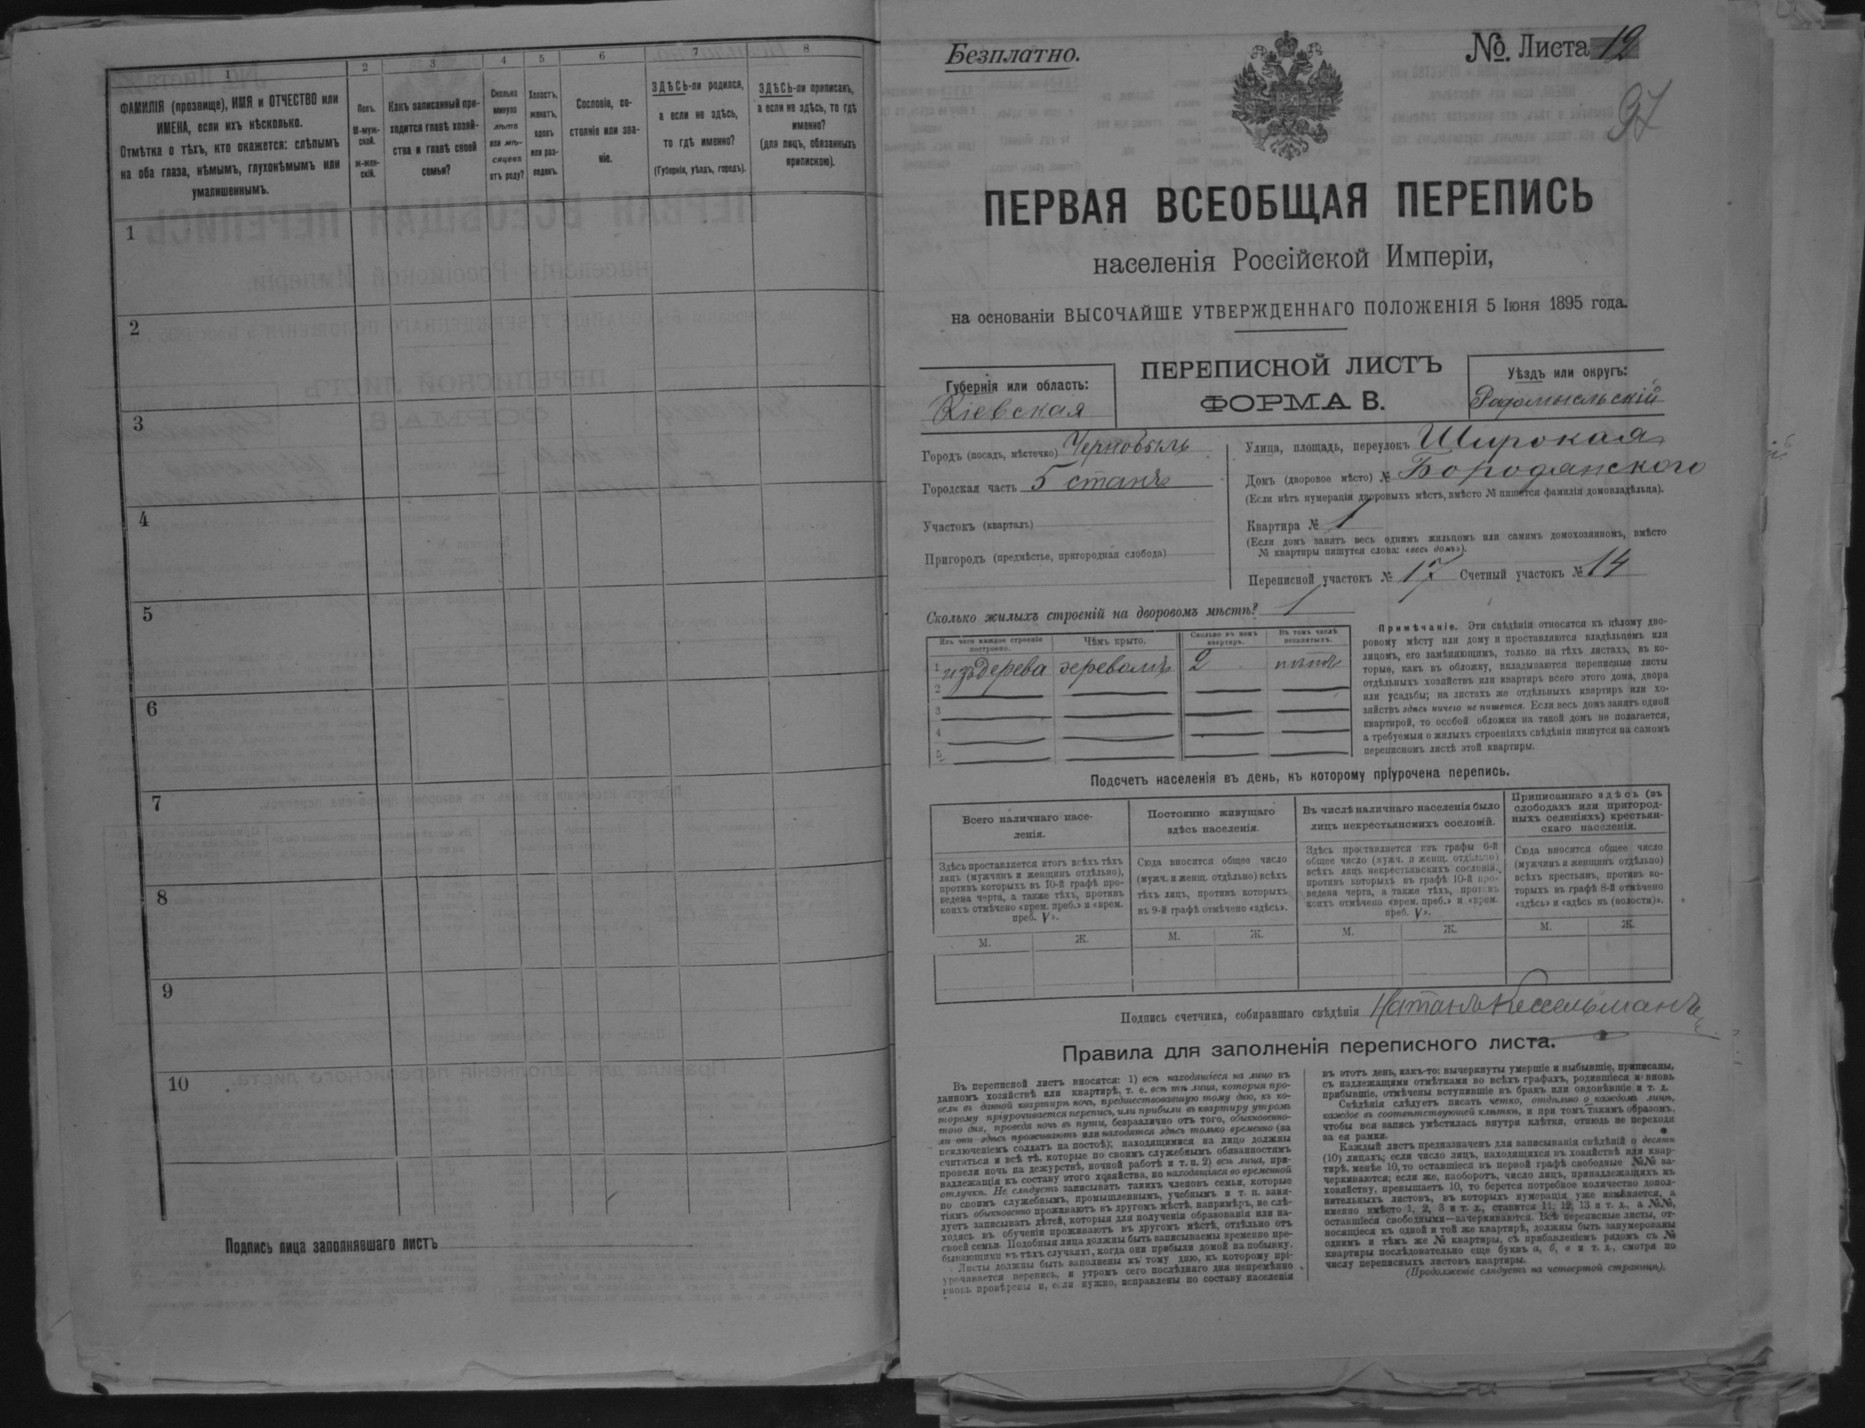 1
2
3
4
5
6
7
8
ФАМИЛІЯ (прозвище), ИМЯ и ОТЧЕСТВО или
ИМЕНА, если ихъ нѣсколько.
Отмѣтка о тѣхъ, кто окажется: слѣпымъ
на оба глаза, нѣмымъ, глухонѣмымъ или
умалишеннымъ.
Полъ.
М-муж-
ской.
ж-жен-
скій.
Какъ записанный при-
ходится главѣ хозяй-
ства и главѣ своей
семьи?
Сколько
минуло
лѣтъ
или мѣ-
сяцевъ
отъ роду?
Холостъ,
женатъ,
вдовъ
или раз-
веденъ.
Сословіе, со-
стояніе или зва-
ніе.
ЗДѢСЬ-ли родился,
а если не здѣсь,
то гдѣ именно?
(Губернія, уѣздъ, городъ).
ЗДѢСЬ-ли приписанъ,
а если не здѣсь, то гдѣ
именно?
(для лицъ, обязанныхъ
припискою).
1
2
3
4
5
6
7
8
9
10
Подпись лица заполнявшаго листъ
Безплатно.
№. Листа 12
97
ПЕРВАЯ ВСЕОБЩАЯ ПЕРЕПИСЬ
населенія Россійской Имперіи,
на основаніи ВЫСОЧАЙШЕ УТВЕРЖДЕННАГО ПОЛОЖЕНІЯ 5 Іюня 1895 года.
Губернія или область:
Кіевская
ПЕРЕПИСНОЙ ЛИСТЪ
ФОРМА В.
Уѣздъ или округъ:
Радомысльскій
Городъ (посадъ, мѣстечко) Чернобыль
Городская часть 5 станъ
Участокъ (кварталъ)
Пригородъ (предмѣстье, пригородная слобода)
Улица, площадь, переулокъ Широкая
Домъ (дворовое мѣсто) № Бородянского
(Если нѣтъ нумераціи дворовыхъ мѣстъ, вмѣсто № пишется фамилія домовладѣльца).
Квартира № 1
(Если домъ занятъ весь однимъ жильцомъ или самимъ домохозяиномъ, вмѣсто
№ квартиры пишутся слова: «весь домъ»).
Переписной участокъ № 17 Счетный участокъ № 14
Сколько жилыхъ строеній на дворовомъ мѣстѣ? 1
Изъ чего каждое строеніе
построено.
Чѣмъ крыто.
Сколько въ немъ
квартиръ.
Въ томъ числѣ
незанятыхъ.
1 изъ дерева деревомъ 2 нѣтъ
2
3
4
5
Примѣчаніе. Эти свѣдѣнія относятся къ цѣлому дво-
ровому мѣсту или дому и проставляются владѣльцемъ или
лицомъ, его замѣняющимъ, только на тѣхъ листахъ, въ ко-
торые, какъ въ обложку, вкладываются переписные листы
отдѣльныхъ хозяйствъ или квартиръ всего этого дома, двора
или усадьбы; на листахъ же отдѣльныхъ квартиръ или хо-
зяйствъ здѣсь ничего не пишется. Если весь домъ занятъ одной
квартирой, то особой обложки на такой домъ не полагается,
а требуемыя о жилыхъ строеніяхъ свѣдѣнія пишутся на самомъ
переписномъ листѣ этой квартиры.
Подсчетъ населенія въ день, къ которому пріурочена перепись.
Всего наличнаго насе-
ленія.
Постоянно живущаго
здѣсь населенія.
Въ числѣ наличнаго населенія было
лицъ некрестьянскихъ сословій.
Приписаннаго здѣсь (въ
слободахъ или пригород-
ныхъ селеніяхъ) крестьян-
скаго населенія.
Здѣсь проставляется итогъ всѣхъ тѣхъ
лицъ (мужчинъ и женщинъ отдѣльно),
противъ которыхъ въ 10-й графѣ про-
ведена черта, а также тѣхъ, противъ
коихъ отмѣчено «врем. преб.» и «врем.
преб. V».
Сюда вносится общее число
(мужч. и женщ. отдѣльно) всѣхъ
тѣхъ лицъ, противъ которыхъ
въ 9-й графѣ отмѣчено «здѣсь».
Здѣсь проставляется изъ графы 6-й
общее число (мужч. и женщ. отдѣльно)
всѣхъ лицъ некрестьянскихъ сословій,
противъ которыхъ въ графѣ 10-й про-
ведена черта, а также тѣхъ, противъ
коихъ отмѣчено «врем. преб.» и «врем.
преб. V».
Сюда вносится общее число
(мужчинъ и женщинъ отдѣльно)
всѣхъ крестьянъ, противъ ко-
торыхъ въ графѣ 8-й отмѣчено
«здѣсь» и «здѣсь въ (волости)».
М. Ж. М. Ж. М. Ж. М. Ж.
Подпись счетчика, собиравшаго свѣдѣнія Натанъ Кесельманъ
Правила для заполненія переписного листа.
Въ переписной листъ вносятся: 1) всѣ находящіеся на лицо въ
данномъ хозяйствѣ или квартирѣ, т. е. всѣ тѣ лица, которыя про-
вели въ данной квартирѣ ночь, предшествовавшую тому дню, къ ко-
торому пріурочивается перепись, или прибыли въ квартиру утромъ
того дня, проведя ночь въ пути, безразлично отъ того, обыкновенно-
ли они здѣсь проживаютъ или находятся здѣсь только временно (за
исключеніемъ солдатъ на постоѣ); находящимися на лицо должны
считаться и всѣ тѣ, которые по своимъ служебнымъ обязанностямъ
провели ночь на дежурствѣ, ночной работѣ и т. п. 2) всѣ лица, при-
надлежащія къ составу этого хозяйства, но находящіяся во временной
отлучкѣ. Не слѣдуетъ записывать такихъ членовъ семьи, которые
по своимъ служебнымъ, промышленнымъ, учебнымъ и т. п. заня-
тіямъ обыкновенно проживаютъ въ другомъ мѣстѣ, напримѣръ, не слѣ-
дуетъ записывать дѣтей, которыя для полученія образованія или на-
ходясь въ обученіи проживаютъ въ другомъ мѣстѣ, отдѣльно отъ
своей семьи. Подобныя лица должны быть записываемы временно пре-
бывающими въ тѣхъ случаяхъ, когда они прибыли домой на побывку.
Листы должны быть заполнены къ тому дню, къ которому прі-
урочивается перепись, и утромъ сего послѣдняго дня непремѣнно
вновь провѣрены и, если нужно, исправлены по составу населенія
въ этотъ день, какъ-то: вычеркнуты умершіе и выбывшіе, приписаны,
съ надлежащими отмѣтками во всѣхъ графахъ, родившіеся и вновь
прибывшіе, отмѣчены вступившіе въ бракъ или овдовѣвшіе и т. д.
Свѣдѣнія слѣдуетъ писать четко, отдѣльно о каждомъ лицѣ,
каждое въ соотвѣтствующей клѣткѣ, и при томъ такимъ образомъ,
чтобы вся запись умѣстилась внутри клѣтки, отнюдь не переходя
за ея рамки.
Каждый листъ предназначенъ для записыванія свѣдѣній о десяти
(10) лицахъ; если число лицъ, находящихся въ хозяйствѣ или квар-
тирѣ, менѣе 10, то оставшіеся въ первой графѣ свободные №№ за-
черкиваются; если же, наоборотъ, число лицъ, принадлежащихъ къ
хозяйству, превышаетъ 10, то берется потребное количество допол-
нительныхъ листовъ, въ которыхъ нумерація уже измѣняется, а
именно вмѣсто 1, 2, 3 и т. д., ставится 11, 12, 13 и т. д., а №№,
оставшіеся свободными—зачеркиваются. Всѣ переписные листы, от-
носящіеся къ одной и той же квартирѣ, должны быть занумерованы
однимъ и тѣмъ же № квартиры, съ прибавленіемъ рядомъ съ №
квартиры послѣдовательно еще буквъ а, б, в и т. д., смотря по
числу переписныхъ листовъ квартиры.
(Продолженіе слѣдуетъ на четвертой страницѣ).